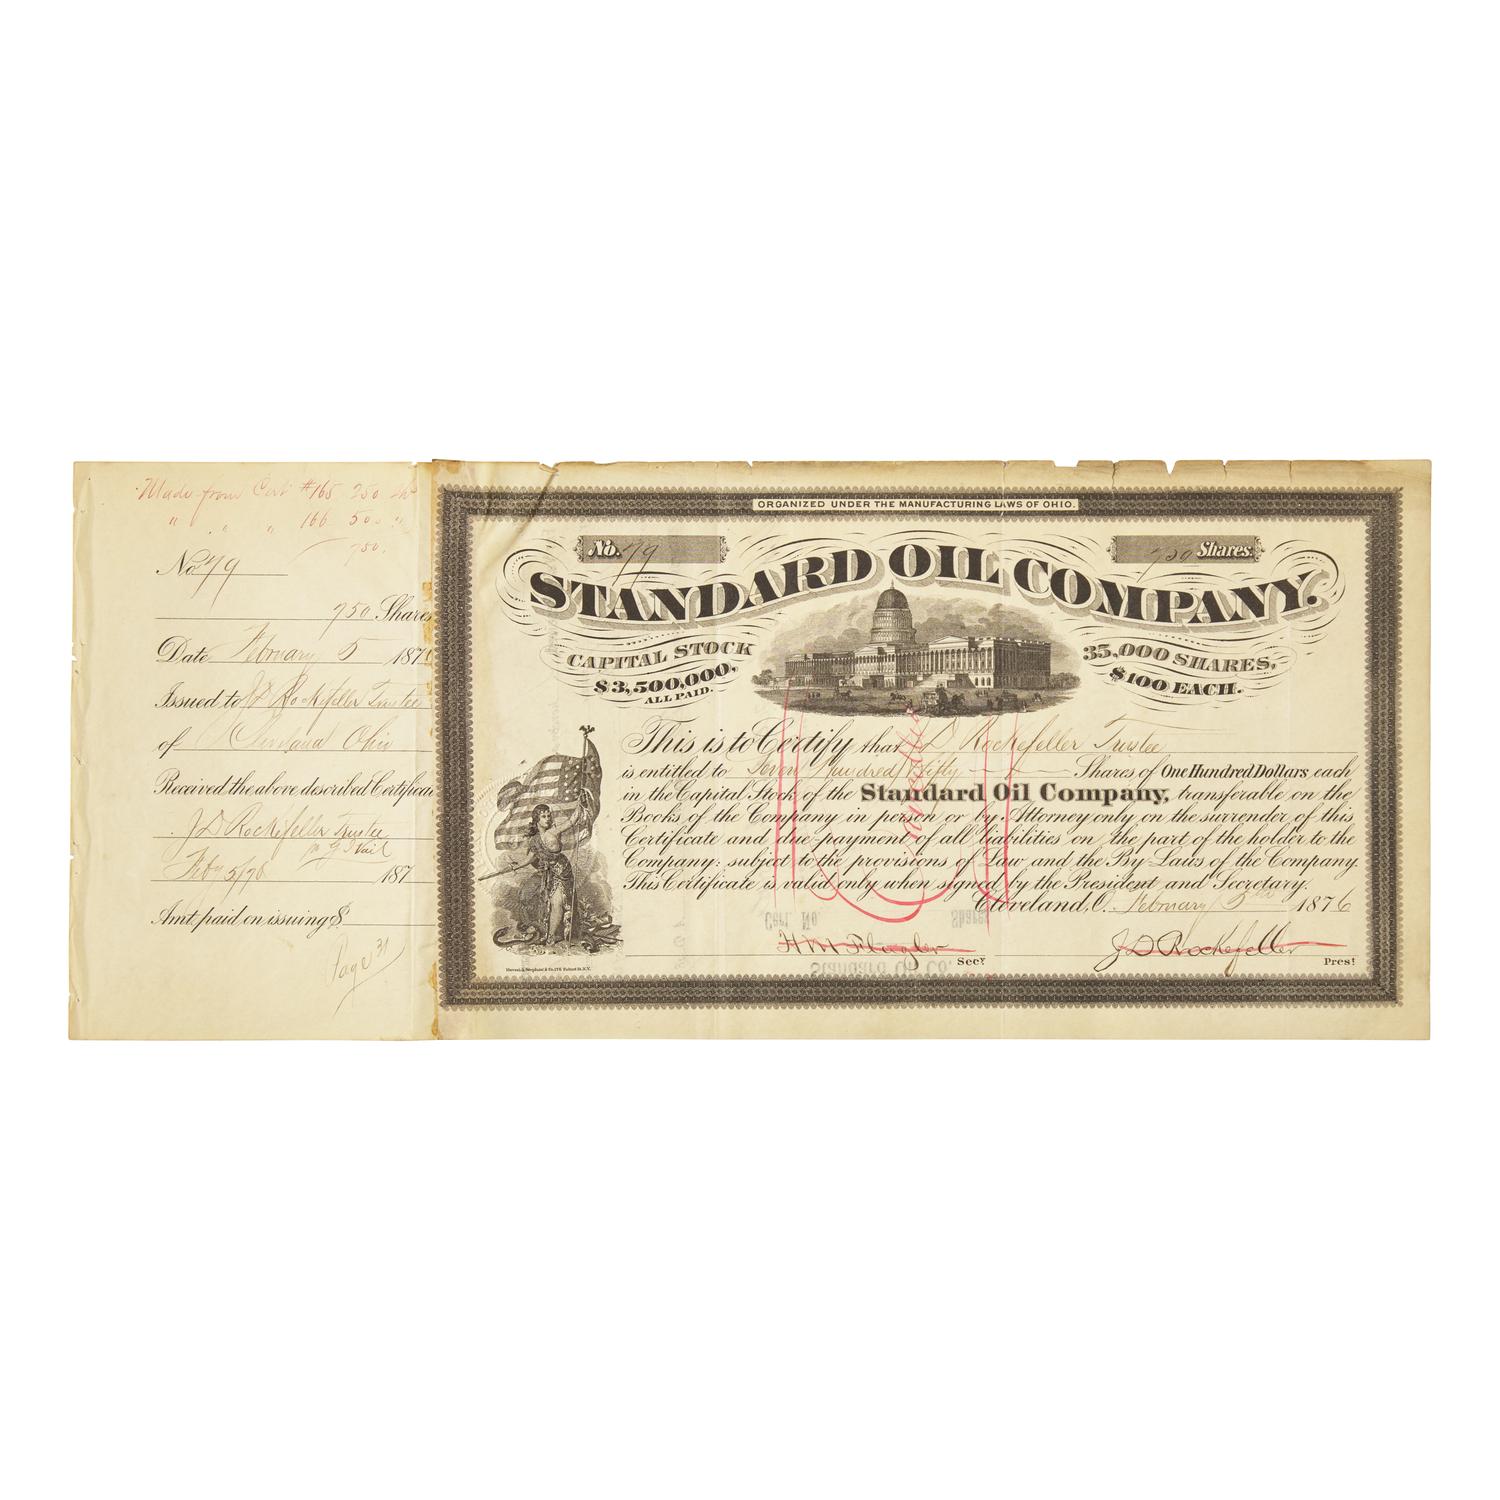 Made from Cert #165 250 Sh
" " " 166 500 "
750.
No. 79
750 Shares
Date February 5 187
Issued to J D Rockefeller Trustee
of Cleveland Ohio
Received the above described Certificate
J D Rockefeller Trustee
Feby 5/76 187
Amt. paid on issuing $
Page 31
ORGANIZED UNDER THE MANUFACTURING LAWS OF OHIO.
No. 79
750 Shares.
STANDARD OIL COMPANY.
CAPITAL STOCK
$3,500,000,
ALL PAID.
35,000 SHARES,
$100 EACH.
This is to Certify that J D Rockefeller Trustee
is entitled to Seven Hundred & Fifty Shares of One Hundred Dollars each
in the Capital Stock of the Standard Oil Company, transferable on the
Books of the Company in person or by Attorney only on the surrender of this
Certificate and due payment of all liabilities on the part of the holder to the
Company: subject to the provisions of Law and the By Laws of the Company.
This Certificate is valid only when signed by the President and Secretary.
Cleveland, O. February 5th 1876
H M Flagler Secy.
J D Rockefeller Prest.